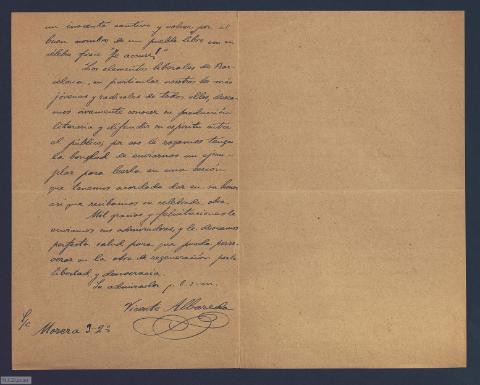 un inocente cautivo y volver por el
buen nombre de un pueblo libre con su
célebre frase "Je accuse!"
Los elementos liberales de Bar-
celona, en particular nosotros los más
jóvenes y radicales de todos ellos, desea-
mos vivamente conocer su producción
literaria y difundir su espíritu entre
el público; por eso le rogamos tenga
la bondad de enviarnos un ejem-
plar para leerlo en una sesión
que tenemos acordada dar en su honor
así que recibamos su celebrada obra.
Mil gracias y felicitaciones le
enviamos sus admiradores, y le deseamos
perfecta salud para que pueda perse-
verar en la obra de regeneración por la
libertad y democracia.
Su admirador q. b. s. m.
Vicente Albareda
S/c Morera 3-2º